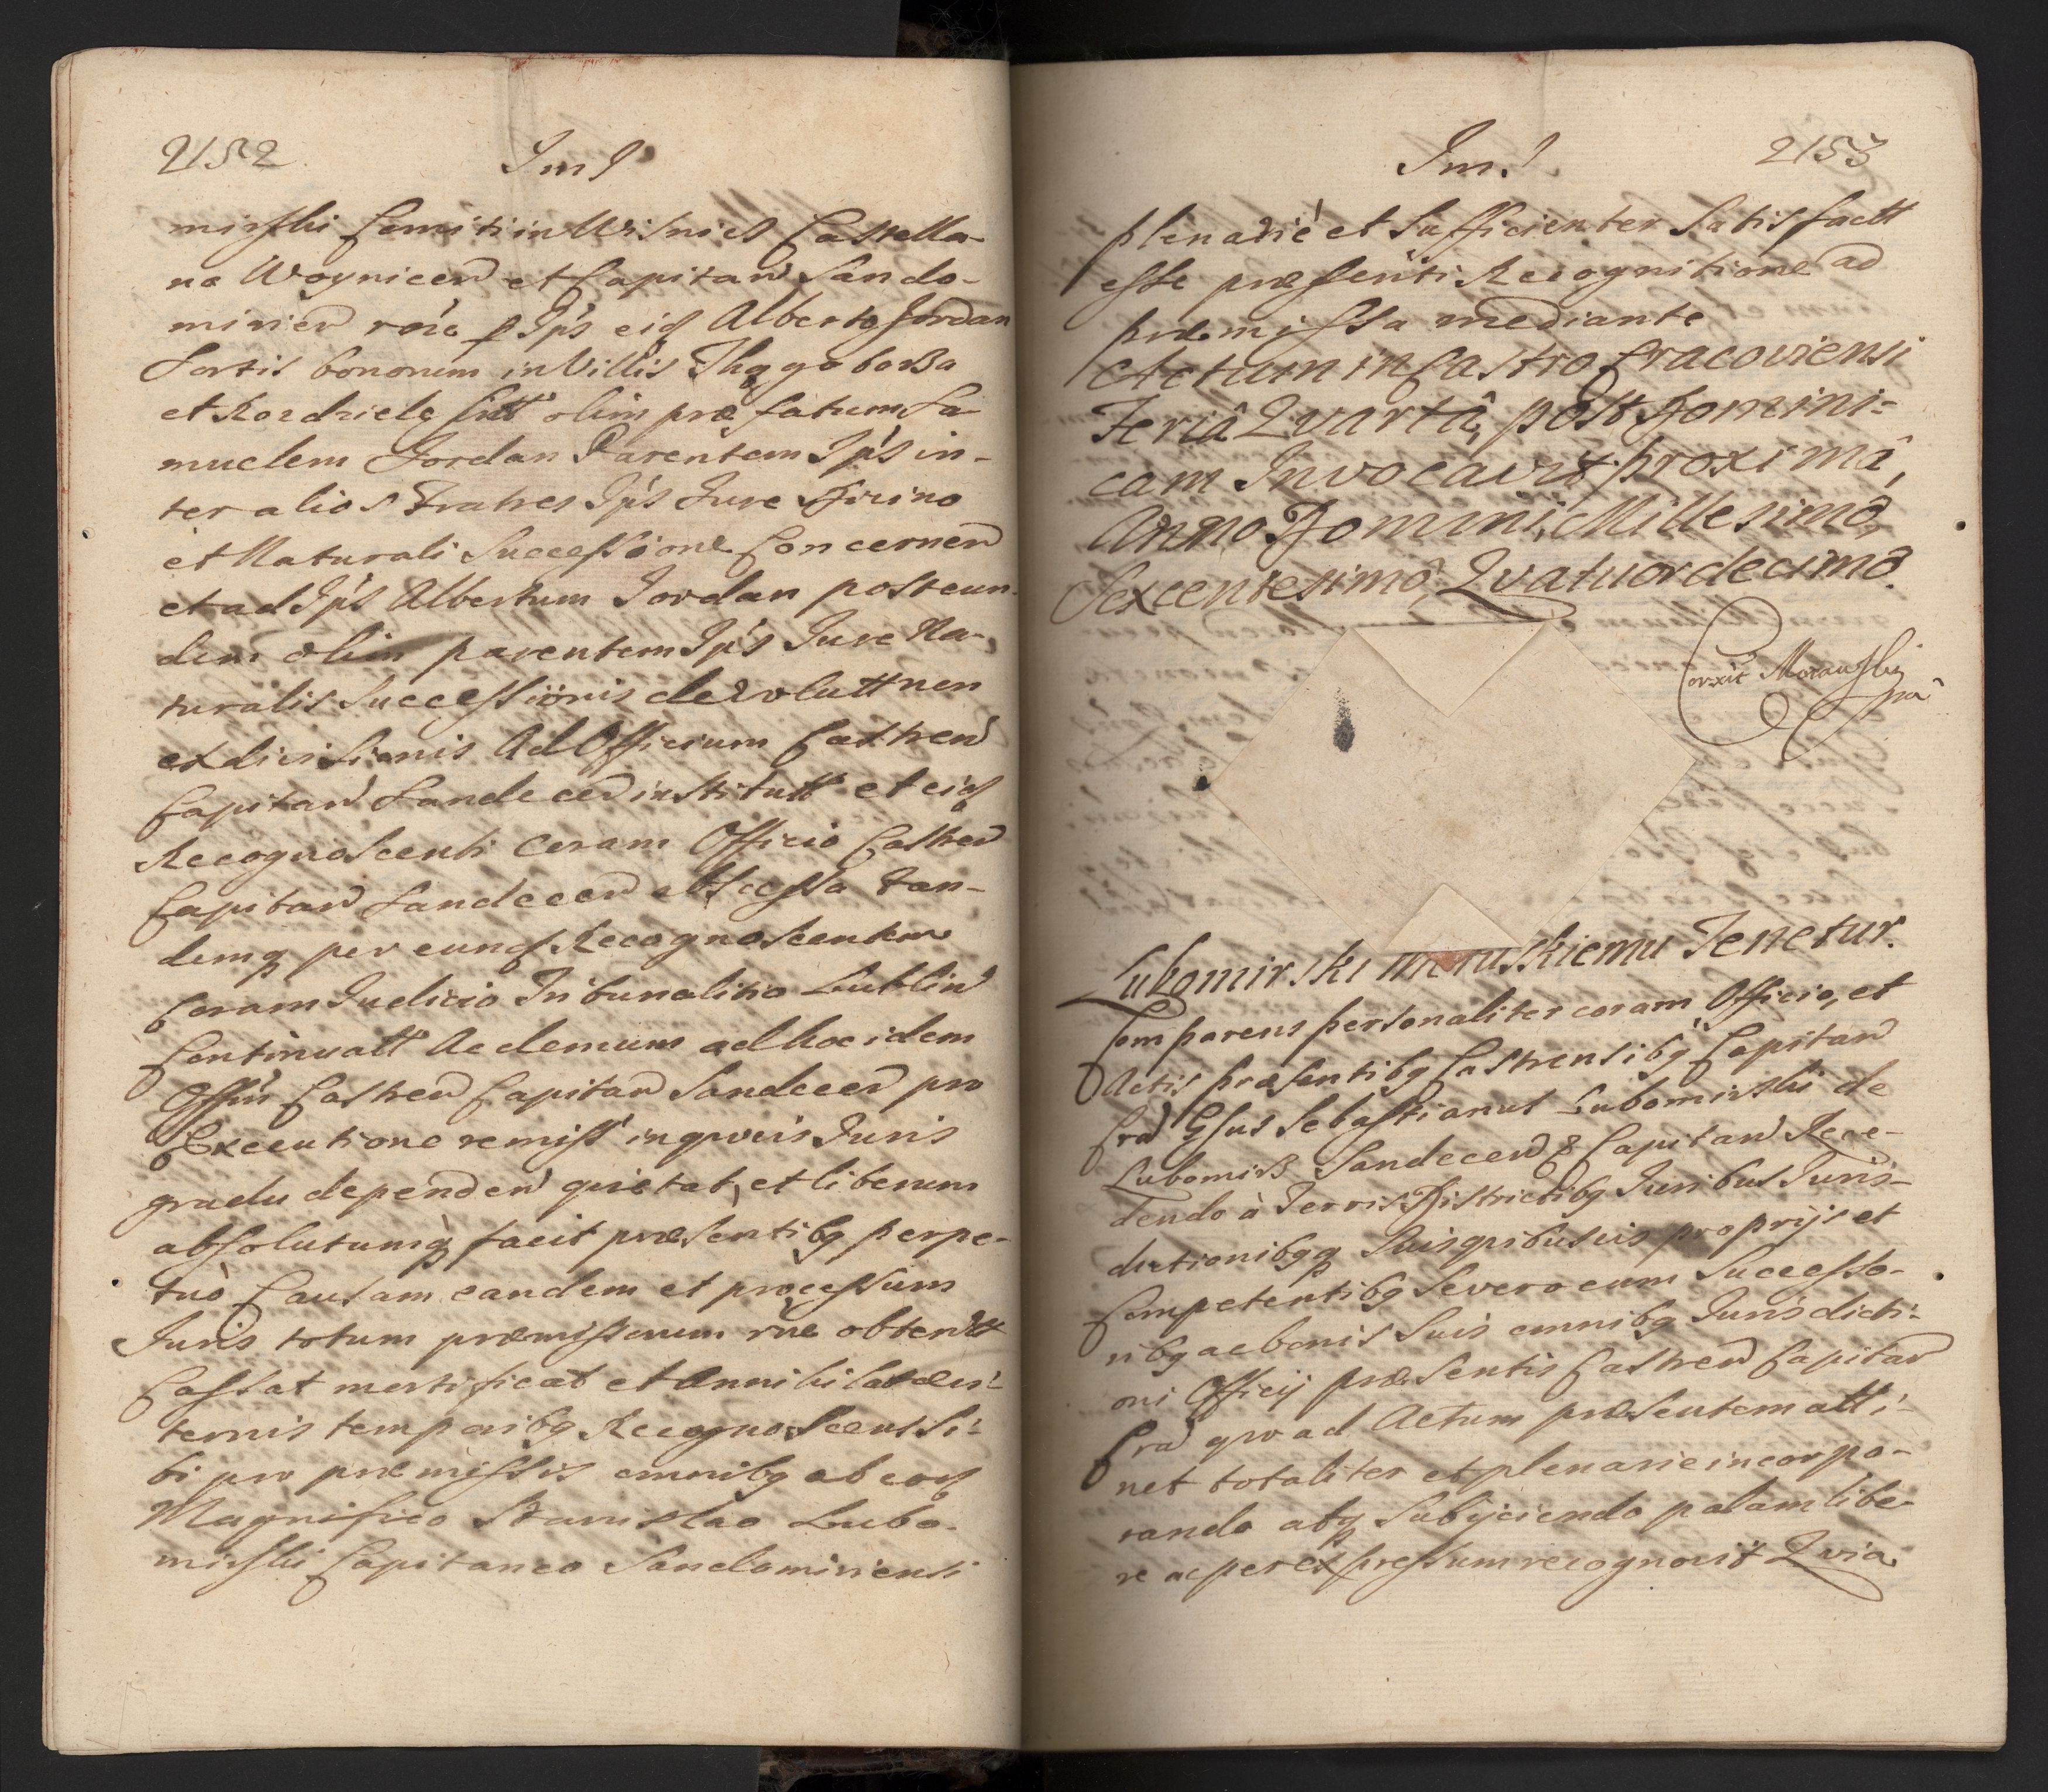 2152
Im?
mirski Comiti in Wisnicz Castella-
no Woynicen et Capitan Sando-
mirien rone p Ips eiq Alberto Jordan
Sortis bonorum in Villis
et sitt olim præfatum Sa-
muelem Jordan Parentem Ips in-
ter alios Fratres Ips Jure Divino
et Naturali Successione Concernen
et ad Ips Albertum Jordan post eun-
dem olim parentem Ips Jure Na-
turalis Successionis devolutt nen
exdivisionis Ad Officium Castren
Capitan Sandecen institutt et eiq
Recognoscenti coram Officio Castren
Capitan Sandecen Tan-
demq per eunq Recognoscentem
Coram Judicio Tribunalitio Lublin
Continuatt Ac demum ad hoc idem
Offm Castren Capitan Sandecen pro
Executione remiss in quovis Juris
gradu dependen quietat, et liberum
absolutumq facit præsentibq perpe-
tuò Causam eandem et processum
Juris totum præmissorum rne obtentt
Cassat mortificat et Annihilat ævi-
ternis temporibq Recognoscens Si-
bi pro præmissis omnibq ab eoq
Magnifico Stanislao Lubo-
mirski Capitaneo Sandomiriensi
Im!
2153
plenariè et Sufficienter Satisfactt
esse præsenti Recognitione ad
præmissa mediante
Actum in Castro Cracoviensi
Feriâ Qvartâ, post Domini-
cam Invocavit proximâ,
Anno Domini, Millesimô,
Sexcentesimô Qvatuordecimô.
Corxit Morawski
mp
Lubomirski Tenetur.
Comparens personaliter coram Officio, et
Actis præsentibq Castrensibq Capitan
Cra Gsus Sebastianus Lubomirski de
Lubomirz Sandecen & Capitan Rece-
dendo à Terris Districtibq Juribus Juris-
dictionibqq Suis quibusvis proprijs et
Competentibq Se vero cum Successo-
ribq ac bonis Suis omnibq Jurisdicti-
oni Officij præsentis Castren Capitan
Cra quo ad Actum præsentem atti-
net totaliter et plenarie incorpo-
rando atq Subijciendo palam libe-
re ac per expressum recognovit Qvia